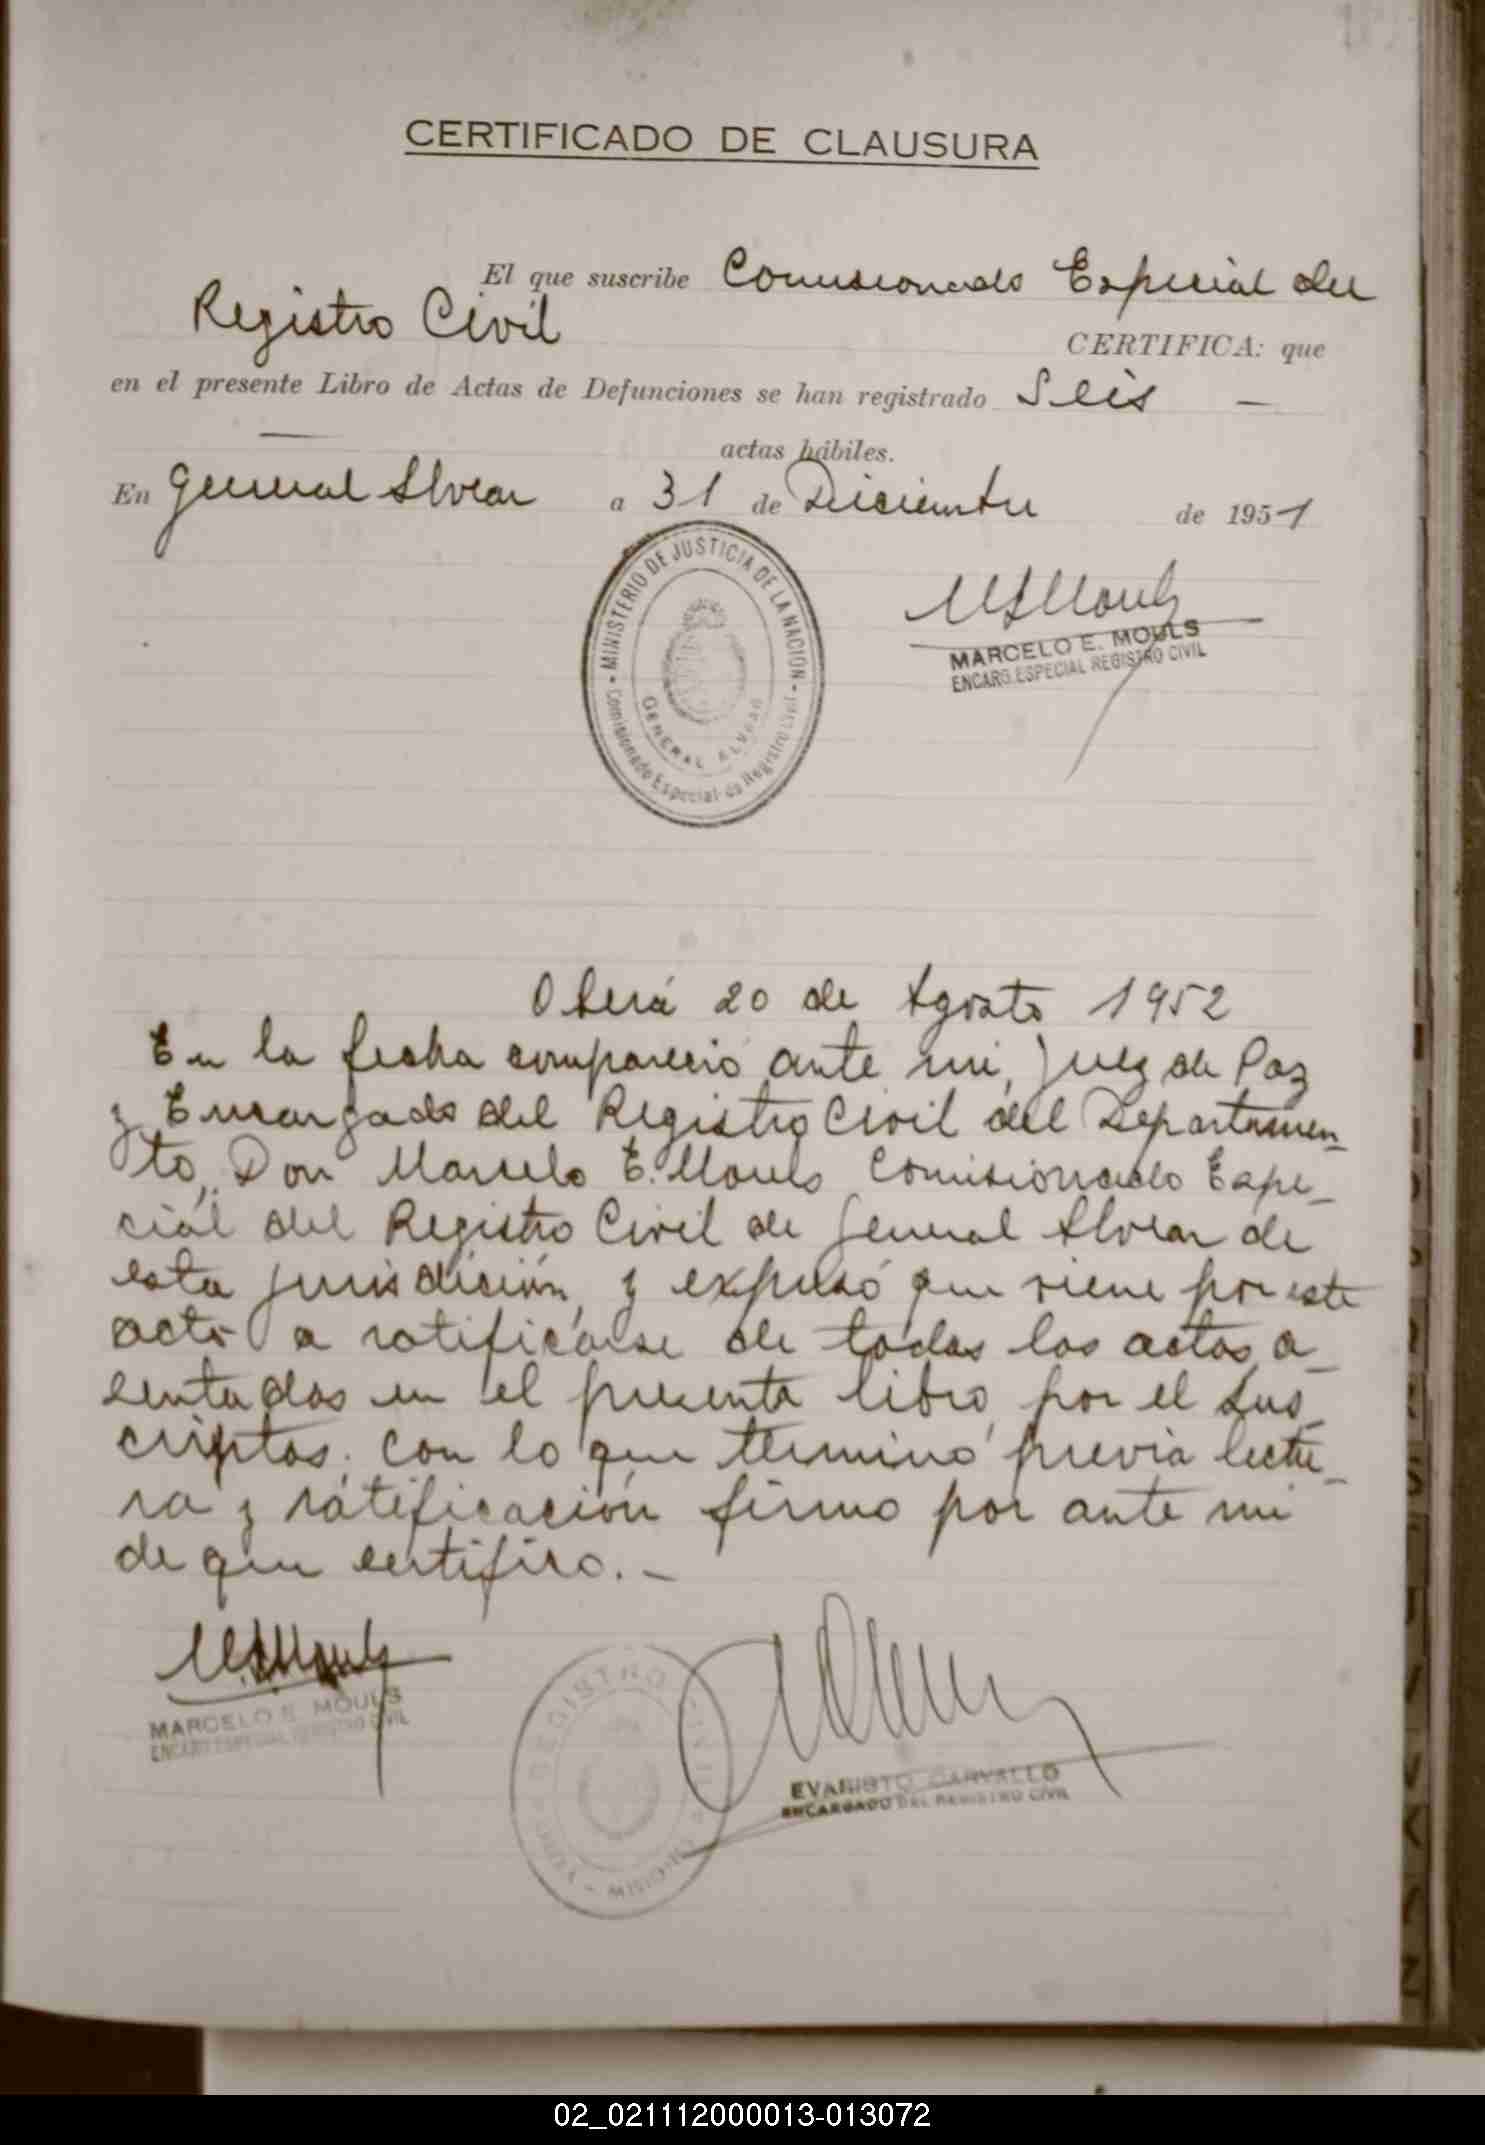 CERTIFICADO DE CLAUSURA
El que suscribe Comisionado Especial del
Registro Civil
CERTIFICA: que
en el presente Libro de Actas de Defunciones se han registrado Seis —
— actas hábiles.
En General Alvear a 31 de Diciembre de 1951
MINISTERIO DE JUSTICIA DE LA NACION
GENERAL ALVEAR
Comisionado Especial de Registro Civil
MARCELO E. MOULS
ENCARG. ESPECIAL REGISTRO CIVIL
Oberá 20 de Agosto 1952
En la fecha compareció ante mi, Juez de Paz
y Encargado del Registro Civil del Departamen-
to, Don Marcelo E. Mouls Comisionado Espe-
cial del Registro Civil de General Alvear de
esta jurisdición, y expusó que viene por este
acto a ratificarse de todas las actas a-
sentadas en el presente libro, por el sus-
criptos, con lo que termino previa lectu-
ra y ratificación firmo por ante mi
de que certifico. —
MARCELO E. MOULS
ENCARG. ESPECIAL REGISTRO CIVIL
REGISTRO CIVIL
EVARISTO CARVALLO
ENCARGADO DEL REGISTRO CIVIL
02_021112000013-013072